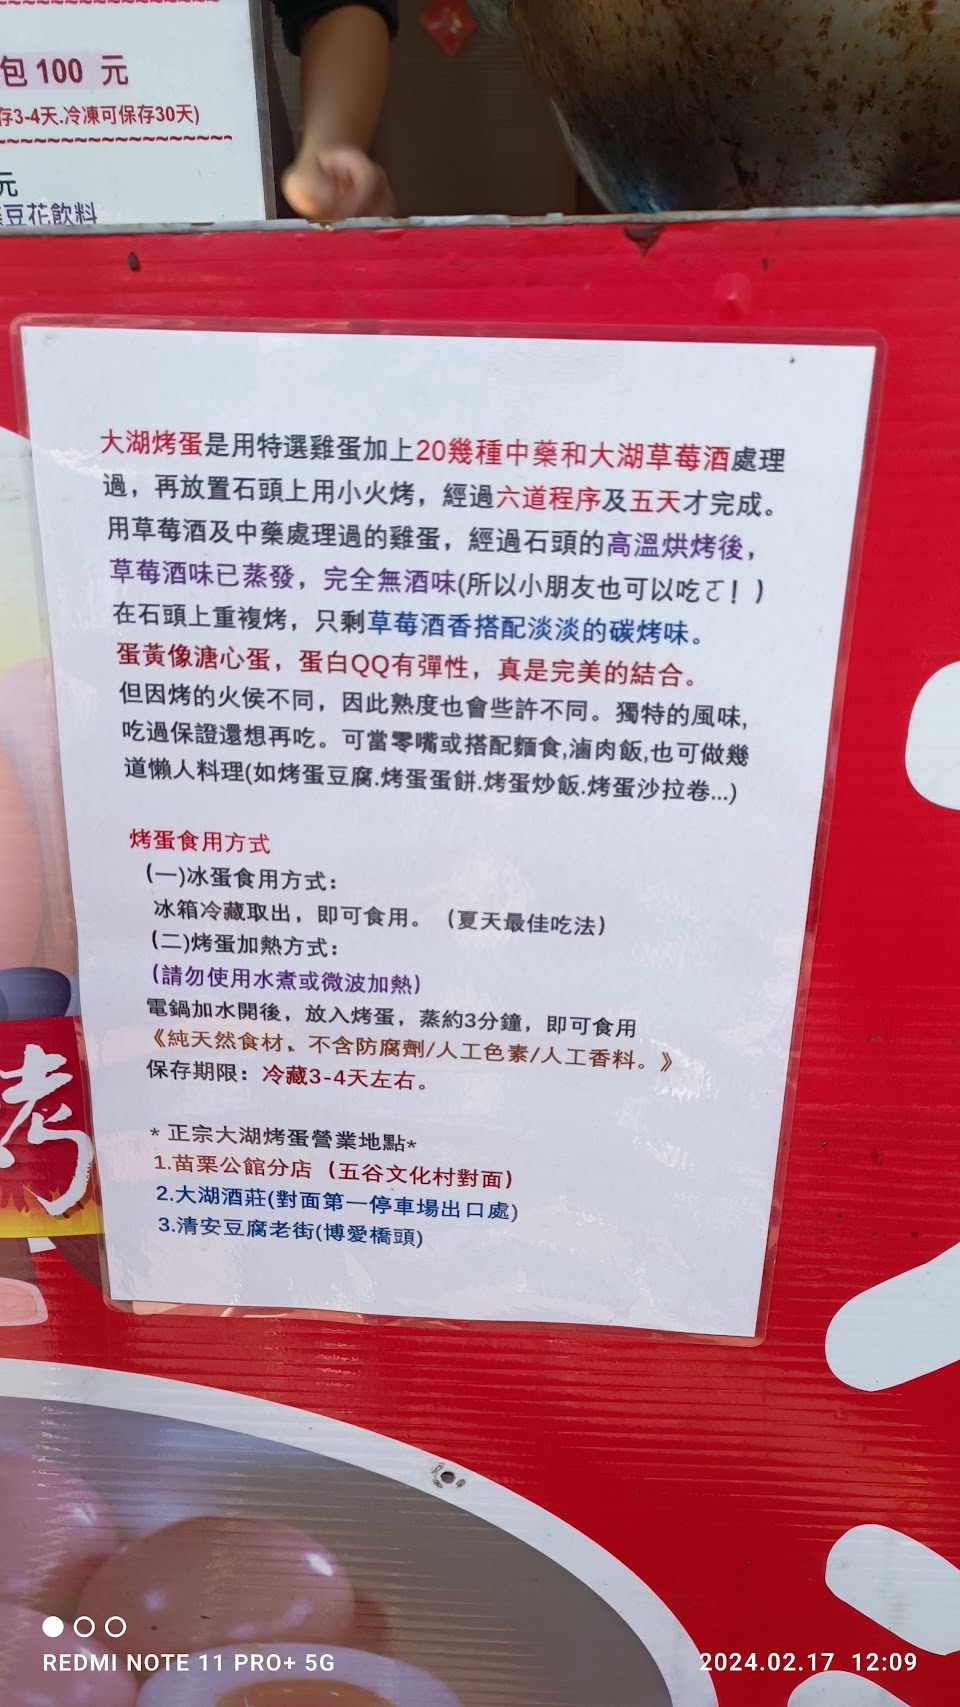 包 100 元
存3-4天.冷凍可保存30天)
元
豆花飲料
大湖烤蛋是用特選雞蛋加上20幾種中藥和大湖草莓酒處理
過，再放置石頭上用小火烤，經過六道程序及五天才完成。
用草莓酒及中藥處理過的雞蛋，經過石頭的高溫烘烤後，
草莓酒味已蒸發，完全無酒味(所以小朋友也可以吃ㄛ！)
在石頭上重複烤，只剩草莓酒香搭配淡淡的碳烤味。
蛋黃像溏心蛋，蛋白QQ有彈性，真是完美的結合。
但因烤的火侯不同，因此熟度也會些許不同。獨特的風味,
吃過保證還想再吃。可當零嘴或搭配麵食,滷肉飯,也可做幾
道懶人料理(如烤蛋豆腐.烤蛋蛋餅.烤蛋炒飯.烤蛋沙拉卷...)
烤蛋食用方式
(一)冰蛋食用方式：
冰箱冷藏取出，即可食用。（夏天最佳吃法）
(二)烤蛋加熱方式：
(請勿使用水煮或微波加熱)
電鍋加水開後，放入烤蛋，蒸約3分鐘，即可食用
《純天然食材、不含防腐劑/人工色素/人工香料。》
保存期限：冷藏3-4天左右。
* 正宗大湖烤蛋營業地點*
1.苗栗公館分店（五谷文化村對面）
2.大湖酒莊(對面第一停車場出口處)
3.清安豆腐老街(博愛橋頭)
烤
REDMI NOTE 11 PRO+ 5G
2024.02.17 12:09